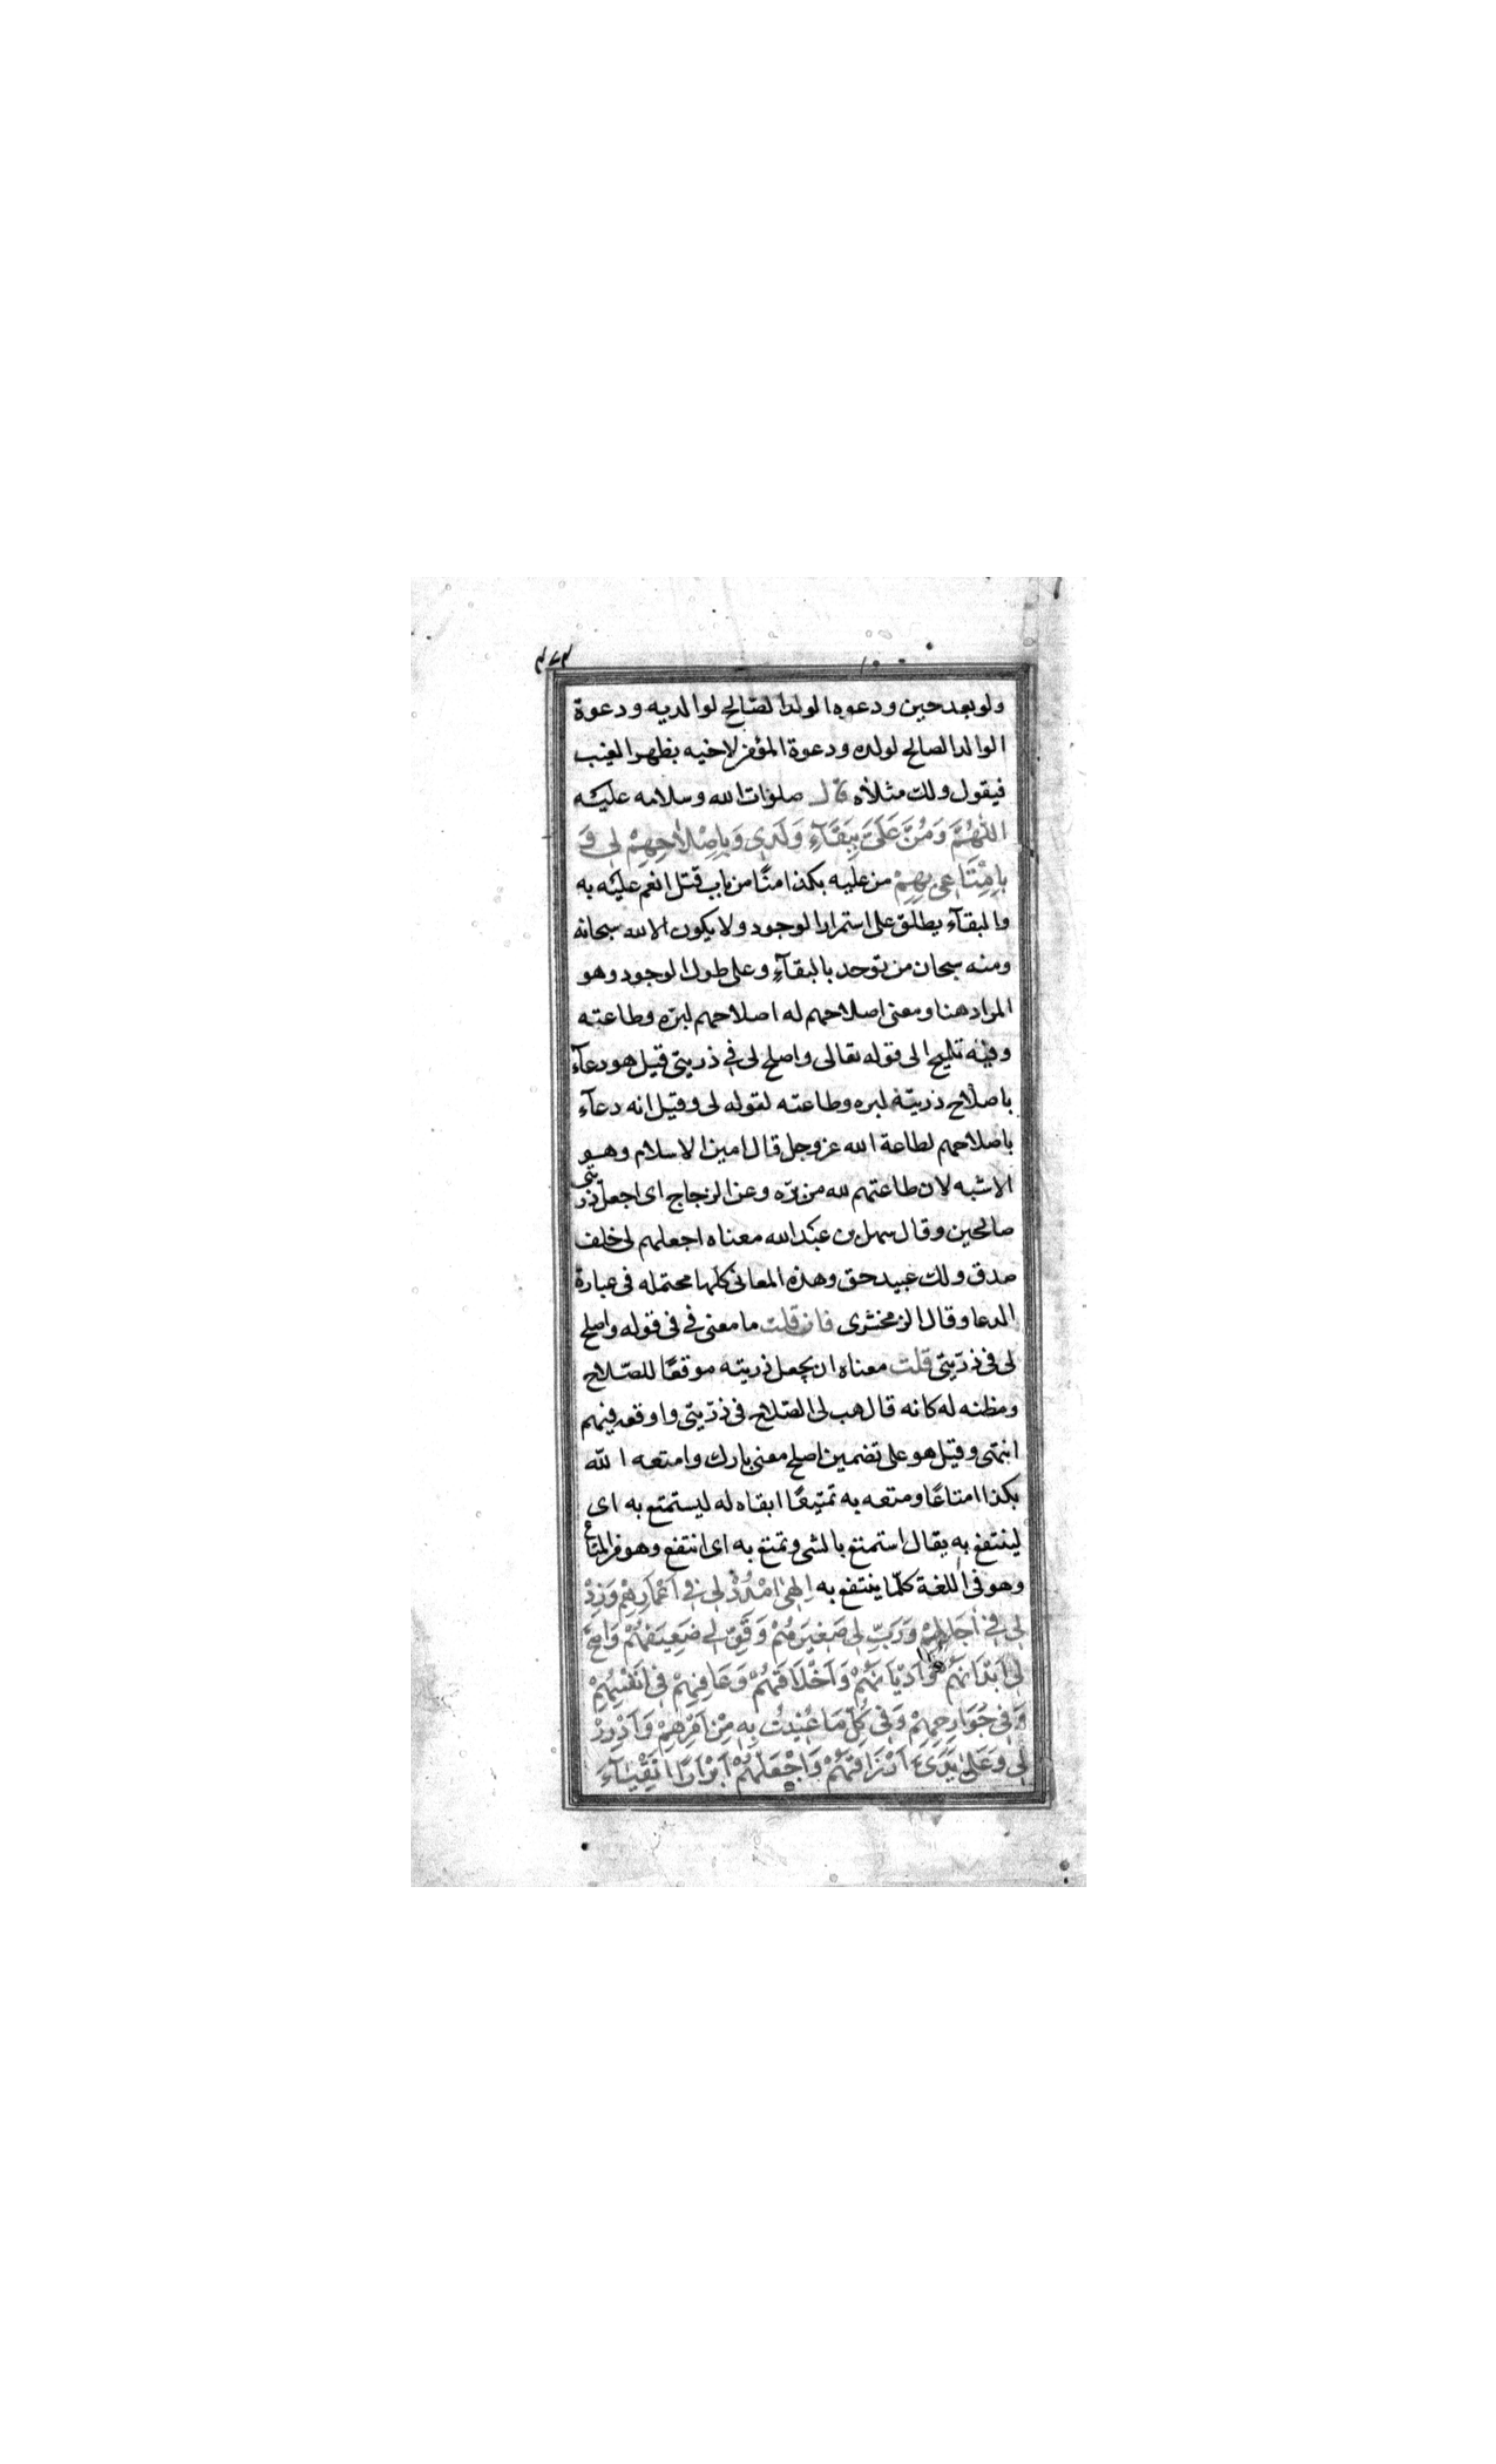 ٤٧٤
ولو بعد حين ودعوة الولد الصالح لوالديه ودعوة
الوالد الصالح لولده ودعوة المؤمن لاخيه بظهر الغيب
فيقول ولك مثلاه قال صلوات الله وسلامه عليه
اللّٰهُمَّ وَمُنَّ عَلَيَّ بِبَقَآءِ وَلَدِي وَبِاِصْلَاحِهِمْ لِي وَ
بِاِمْتَاعِي بِهِمْ من عليه بكذا منًّا من باب قتل انعم عليه به
والبقآء يطلق على استمرار الوجود ولا يكون الا لله سبحانه
ومنه سبحان من توحد بالبقآءِ وعلى طول الوجود وهو
المراد هنا ومعنى اصلاحهم له اصلاحهم لبرّه وطاعته
وفيه تلميح الى قوله تعالى واصلح لى فى ذريتى قيل هو دعآء
باصلاح ذريته لبره وطاعته لقوله لى وقيل انه دعآء
باصلاحهم لطاعة الله عز وجل قال امين الاسلام وهو
الاشبه لان طاعتهم لله من برّه وعن الزجاج اى اجعل ذريتى
صالحين وقال سهل بن عبد الله معناه اجعلهم لى خلف
صدق ولك عبيد حق وهذه المعانى كلها محتمله فى عبارة
الدعا وقال الزمخشرى فان قلت ما معنى فى فى قوله واصلح
لى فى ذرّيتى قلت معناه ان يجعل ذريته موقعًا للصّلاح
ومظنه له كانه قال هب لى الصّلاح فى ذرّيتى واوقعه فيهم
انتهى وقيل هو على تضمين اصلح معنى بارك وامتعه اللّه
بكذا امتاعًا ومتعه به تمتيعًا ابقاه له ليستمتع به اى
لينتفع به يقال استمتع بالشى وتمتع به اى انتفع وهو من المتاع
وهو فى اللغة كلّما ينتفع به اِلٰهِى امْدُدْ لِى فِى اَعْمَارِهِمْ وَزِدْ
لِى فِى اٰجَالِهِمْ وَرَبِّ لِى صَغِيرَهُمْ وَقَوِّ لِى ضَعِيفَهُمْ وَاَصِحَّ
لِى اَبْدَانَهُمْ وَاَدْيَانَهُمْ وَاَخْلَاقَهُمْ وَعَافِهِمْ فِى اَنْفُسِهِمْ
وَفِى جَوَارِحِهِمْ وَفِى كُلِّ مَا عُنِيتُ بِهِ مِنْ اَمْرِهِمْ وَاَدْرِرْ
لِى وَعَلٰى يَدَيَّ اَرْزَاقَهُمْ وَاجْعَلْهُمْ اَبْرَارًا اَتْقِيَآءَ